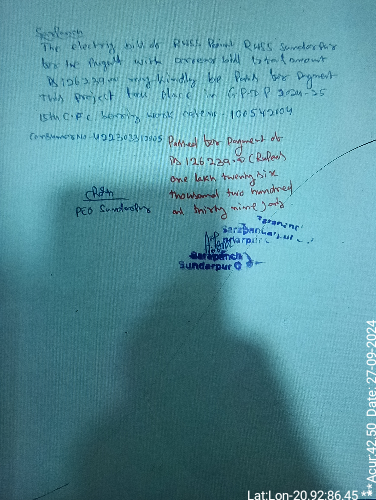 The electricity bill of RWSS Point RWSS Sundarpur
for the August with arrear bill total amount
Rs 126239.00 may kindly be Paid for payment
This project take place in G.P.D.P 2024-25
15th C.F.C bearing work code no - 100542004
Consumer No -
Passed for Payment of
Rs 126239.00 (Rupees
one lakh twenty six
thousand two hundred
and thirty nine) only
PEO Sundarpur
Sarapanch
Sundarpur G
Lat:Lon-20.92:86.45 ***Acur:42.50 Date: 27-09-2024